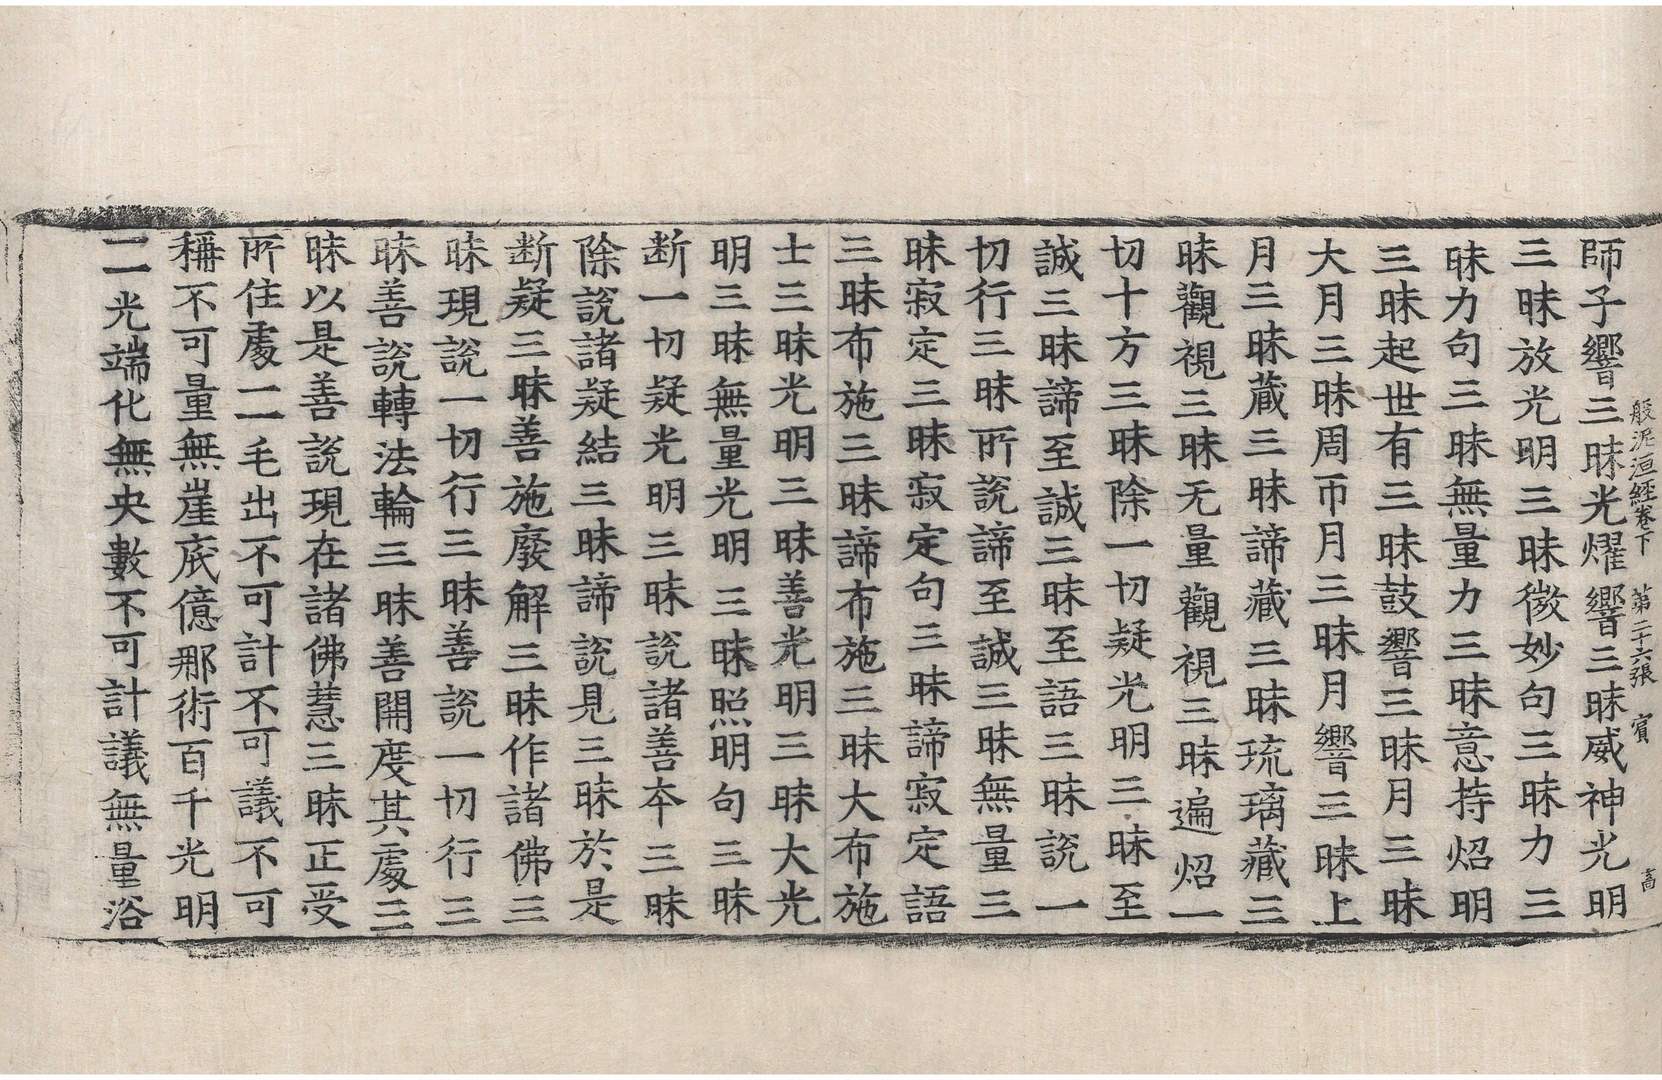 般泥洹經卷下 第二十六張 賓 高
師子響三昧光燿響三昧威神光明
三昧放光明三昧微妙句三昧力三
昧力句三昧無量力三昧意持炤明
三昧起世有三昧鼓響三昧月三昧
大月三昧周帀月三昧月響三昧上
月三昧藏三昧諦藏三昧琉璃藏三
昧觀視三昧无量觀視三昧遍炤一
切十方三昧除一切疑光明三昧至
誠三昧諦至誠三昧至語三昧說一
切行三昧所說諦至誠三昧無量三
昧寂定三昧寂定句三昧諦寂定語
三昧布施三昧諦布施三昧大布施
士三昧光明三昧善光明三昧大光
明三昧無量光明三昧照明句三昧
断一切疑光明三昧說諸善夲三昧
除說諸疑結三昧諦說見三昧於是
断疑三昧善施廢解三昧作諸佛三
昧現說一切行三昧善說一切行三
昧善說轉法輪三昧善開度其處三
昧以是善說現在諸佛慧三昧正受
所住處一一毛出不可計不可議不可
稱不可量無崖底億那術百千光明
一一光端化無央數不可計議無量浴